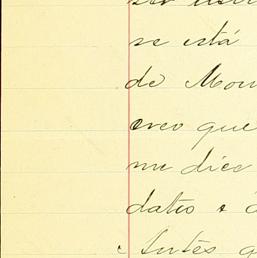 se está
de Mon
creo que
me dice
datos e
Antes q